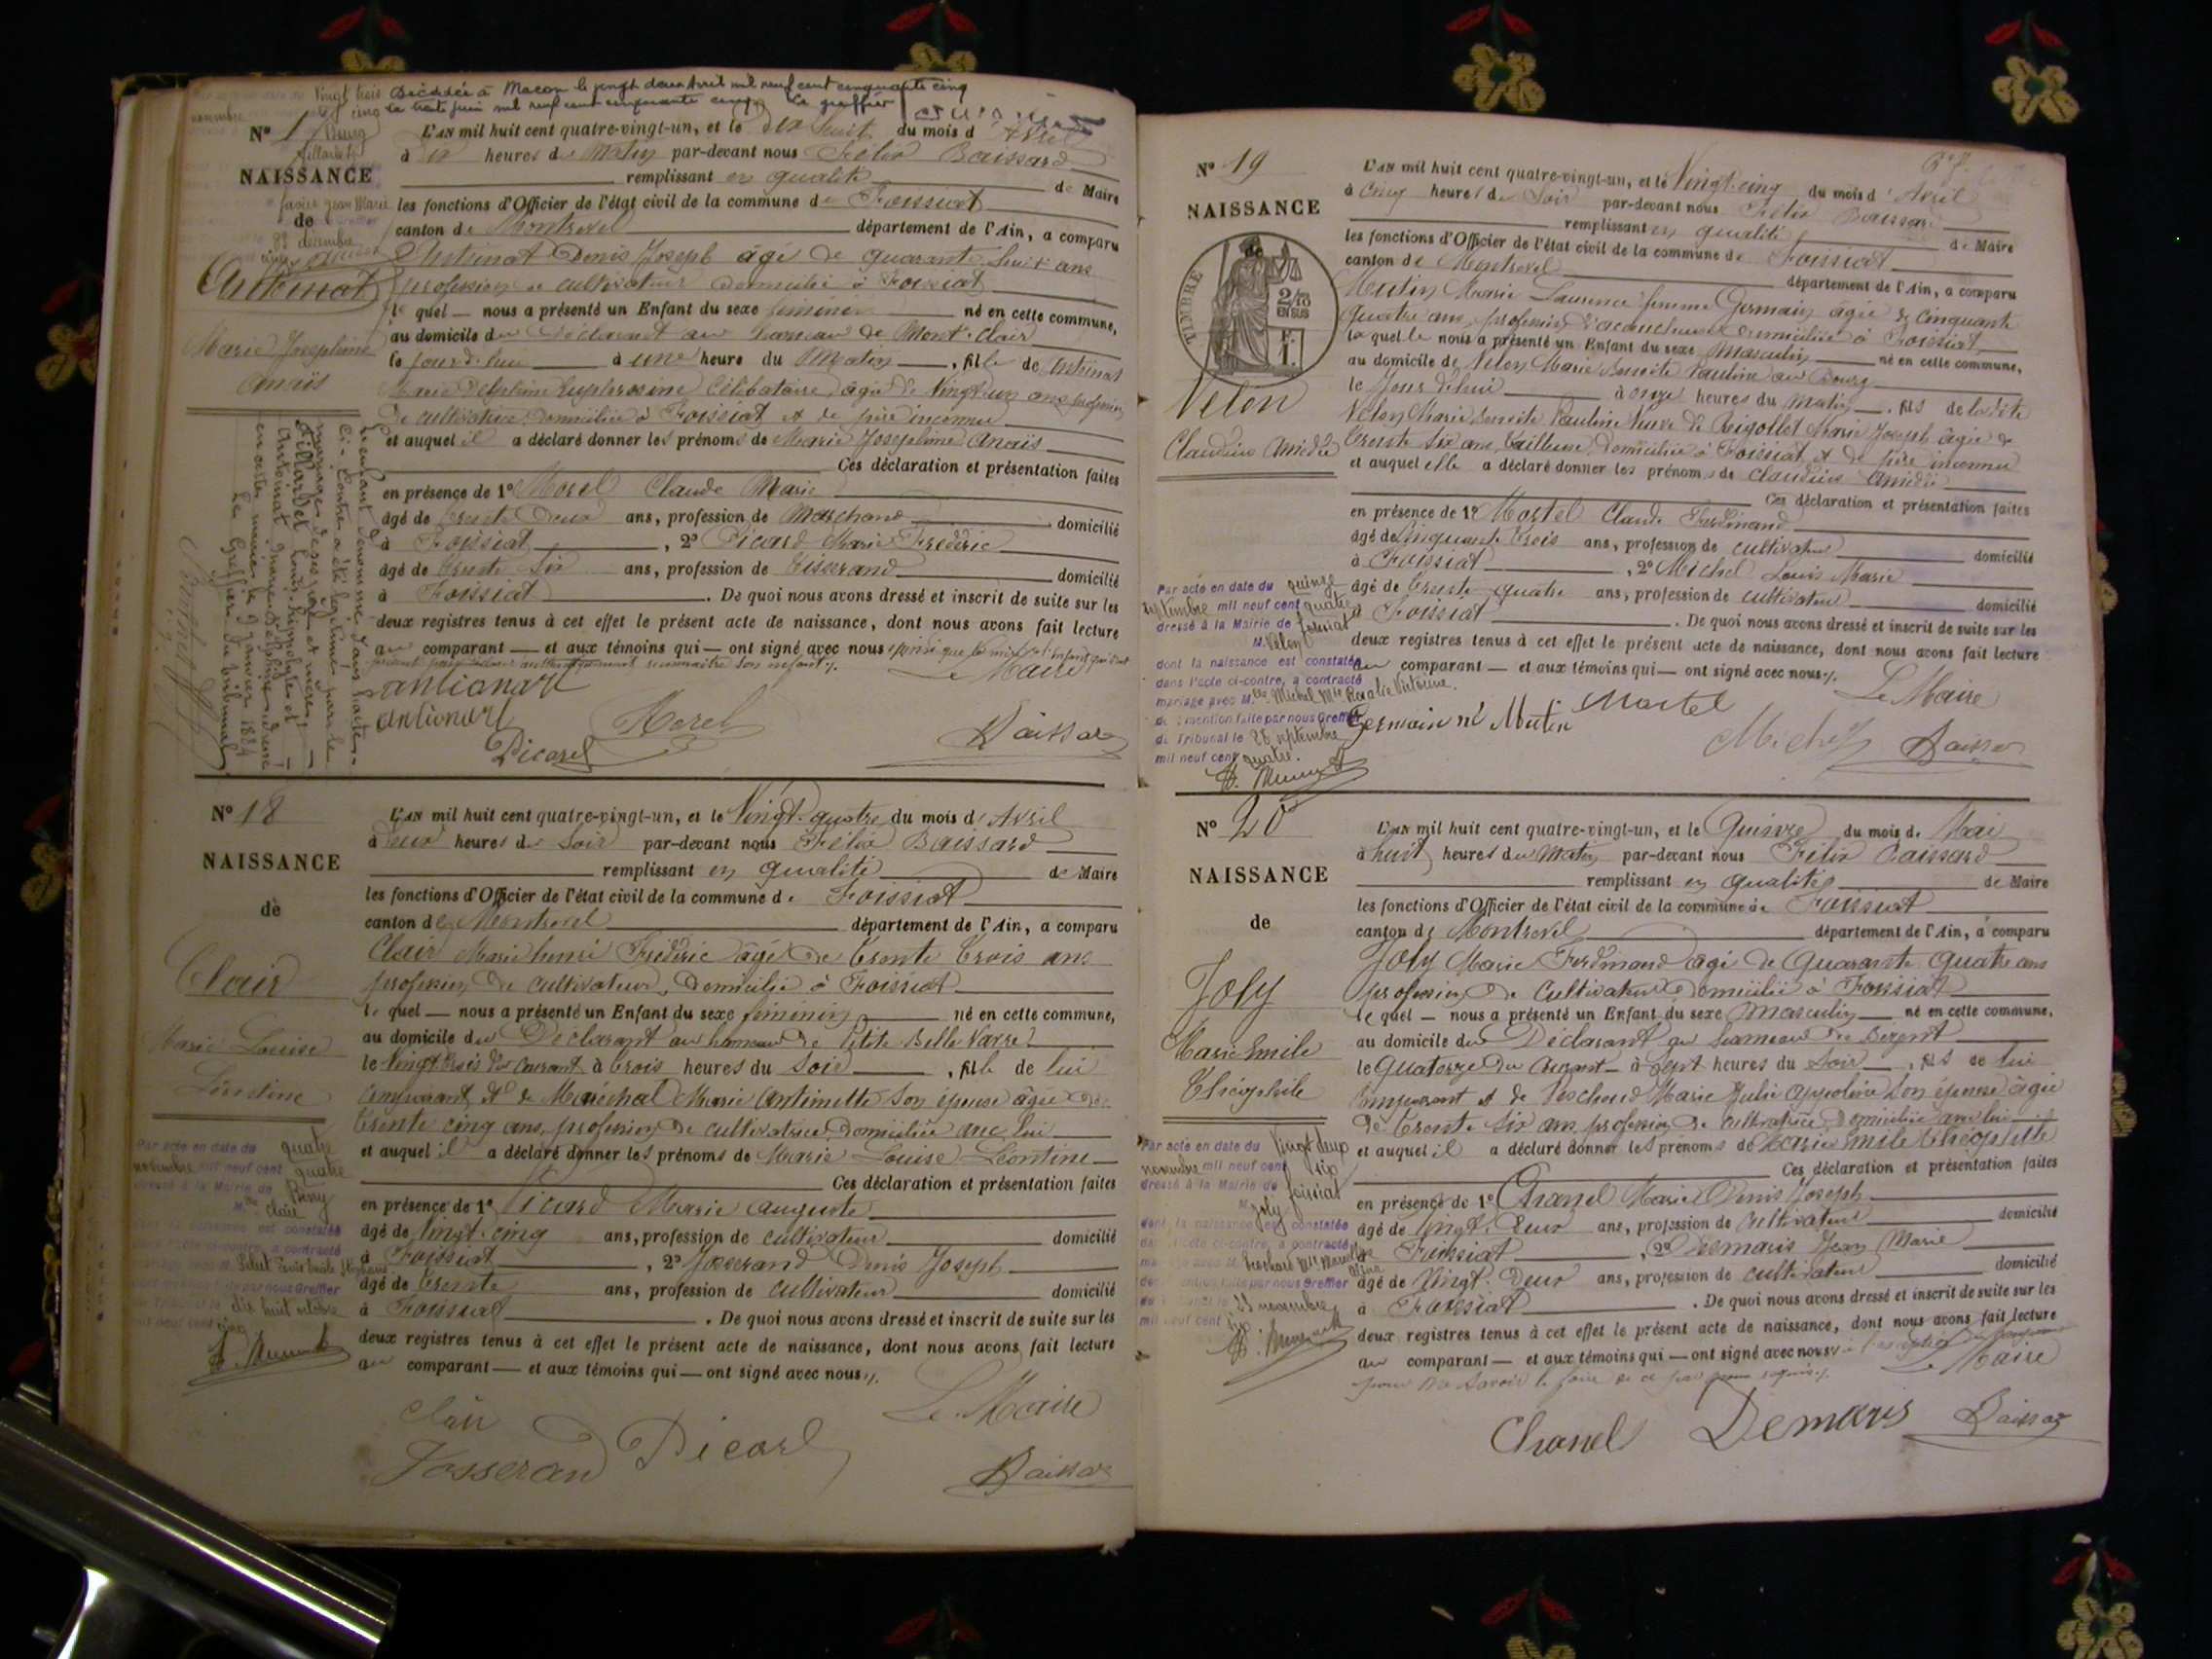 Décédée à Macon le vingt deux Avril mil neuf cent cinquante cinq
le trente juin mil neuf cent cinquante cinq Le greffier
N° 17
NAISSANCE
de
Antoinat
Marie Joséphine
Anaïs
L'AN mil huit cent quatre-vingt-un, et le dix huit du mois d'Avril
à dix heures du Matin par-devant nous Félix Baissard
remplissant en qualité de Maire
les fonctions d'Officier de l'état civil de la commune de Foissiat
canton de Montrevel département de l'Ain, a comparu
Antoinat Denis Joseph âgé de quarante huit ans
profession de cultivateur domicilié à Foissiat
le quel — nous a présenté un Enfant du sexe féminin né en cette commune,
au domicile du déclarant au hameau de Mont-Clair
le jourd'hui à une heure du Matin —, fille de Antoinat
Marie Delphine Euphrosine Célibataire, âgée de Vingt un ans profession
de cultivatrice domiciliée à Foissiat et de père inconnu
et auquel il a déclaré donner les prénoms de Marie Joséphine Anaïs
Ces déclaration et présentation faites
en présence de 1° Morel Claude Marie
âgé de trente deux ans, profession de Marchand domicilié
à Foissiat, 2° Picard Marie Frédéric
âgé de trente six ans, profession de Tisserand domicilié
à Foissiat. De quoi nous avons dressé et inscrit de suite sur les
deux registres tenus à cet effet le présent acte de naissance, dont nous avons fait lecture
au comparant — et aux témoins qui — ont signé avec nous
Le Maire
antionart
antionart
Morel
Picard
Baissard
L'enfant dénommé dans l'acte
ci-contre a été légitimé par le
mariage de ses père et mère,
Fillardet Louis Hippolyte et
Antoinat Marie Delphine Euphrosine
Le Greffier du tribunal,
N° 18
NAISSANCE
de
Clair
Marie Louise
Léontine
L'AN mil huit cent quatre-vingt-un, et le Vingt-quatre du mois d'Avril
à deux heures du Soir par-devant nous Félix Baissard
remplissant en qualité de Maire
les fonctions d'Officier de l'état civil de la commune de Foissiat
canton de Montrevel département de l'Ain, a comparu
Clair Marie henri Frédéric âgé de trente trois ans
profession de cultivateur, domicilié à Foissiat
le quel — nous a présenté un Enfant du sexe féminin né en cette commune,
au domicile du Déclarant au hameau de Petite Belle Vavre
le Vingt trois du courant à trois heures du Soir, fille de lui
comparant et de Maréchal Marie Antoinette son épouse âgée de
trente cinq ans, profession de cultivatrice, domiciliée avec lui
et auquel il a déclaré donner les prénoms de Marie Louise Léontine
Ces déclaration et présentation faites
en présence de 1° Picard Marie Auguste
âgé de Vingt-cinq ans, profession de cultivateur domicilié
à Foissiat, 2° Josserand Denis Joseph
âgé de trente ans, profession de cultivateur domicilié
à Foissiat. De quoi nous avons dressé et inscrit de suite sur les
deux registres tenus à cet effet le présent acte de naissance, dont nous avons fait lecture
au comparant — et aux témoins qui — ont signé avec nous
Par acte en date du quatre
novembre mil neuf cent quatre
dressé à la Mairie de
Mlle Clair
dix huit octobre
Le Maire
Clair
Josserand
Picard
Baissard
N° 19
NAISSANCE
de
TIMBRE
2/10
EN SUS
F.
1.
Velon
Claudius Amédée
L'AN mil huit cent quatre-vingt-un, et le Vingt-cinq du mois d'Avril
à cinq heures du Soir par-devant nous Félix Baissard
remplissant en qualité de Maire
les fonctions d'Officier de l'état civil de la commune de Foissiat
canton de Montrevel département de l'Ain, a comparu
Mutin Marie Laurence femme Germain âgée de cinquante
quatre ans, profession d'accoucheuse domiciliée à Foissiat
la quelle nous a présenté un Enfant du sexe Masculin né en cette commune,
au domicile de Velon Marie Benoite Pauline au Bourg
le Jour d'hui à onze heures du Matin —, fils de la dite
Velon Marie Benoite Pauline Veuve de Rigollet Marie Joseph âgée de
trente six ans, tailleuse, domiciliée à Foissiat, et de père inconnu
et auquel elle a déclaré donner les prénoms de Claudius Amédée
Ces déclaration et présentation faites
en présence de 1° Martel Claude Ferdinand
âgé de Cinquante trois ans, profession de cultivateur domicilié
à Foissiat, 2° Michel Louis Marie
âgé de trente quatre ans, profession de cultivateur domicilié
à Foissiat. De quoi nous avons dressé et inscrit de suite sur les
deux registres tenus à cet effet le présent acte de naissance, dont nous avons fait lecture
au comparant — et aux témoins qui — ont signé avec nous
Par acte en date du quinze
septembre mil neuf cent quatre
dressé à la Mairie de Foissiat
M. Velon
dont la naissance est constatée
dans l'acte ci-contre, a contracté
mariage avec Mlle Michel Mie Rosalie Victorine.
mention faite par nous Greffier
du Tribunal le 28 septembre
mil neuf cent quatre.
Le Maire
Germain né Mutin
Martel
Michel
Baissard
N° 20
NAISSANCE
de
Joly
Marie Emile
Théophile
L'AN mil huit cent quatre-vingt-un, et le Quinze du mois de Mai
à huit heures du Matin par-devant nous Félix Baissard
remplissant en qualité de Maire
les fonctions d'Officier de l'état civil de la commune de Foissiat
canton de Montrevel département de l'Ain, a comparu
Joly Marie Ferdinand âgé de Quarante Quatre ans
profession de Cultivateur domicilié à Foissiat
le quel — nous a présenté un Enfant du sexe Masculin — né en cette commune,
au domicile du Déclarant au hameau de
le Quatorze du courant à Sept heures du Soir —, fils de lui
Comparant et de Pochoud Marie Julie Appolinie son épouse âgée
de trente six ans profession de cultivatrice, domiciliée avec lui
et auquel il a déclaré donner les prénoms de Marie Emile Théophile
Ces déclaration et présentation faites
en présence de 1° Chanel Marie Denis Joseph
âgé de Vingt-Deux ans, profession de Cultivateur domicilié
à Foissiat, 2° Desmaris Jean Marie
âgé de Vingt-Deux ans, profession de cultivateur domicilié
à Foissiat. De quoi nous avons dressé et inscrit de suite sur les
deux registres tenus à cet effet le présent acte de naissance, dont nous avons fait lecture
au comparant — et aux témoins qui — ont signé avec nous
Par acte en date du Vingt deux
novembre mil neuf cent six
dressé à la Mairie de Foissiat
M. Joly
Le Maire
Chanel
Demaris
Baissard